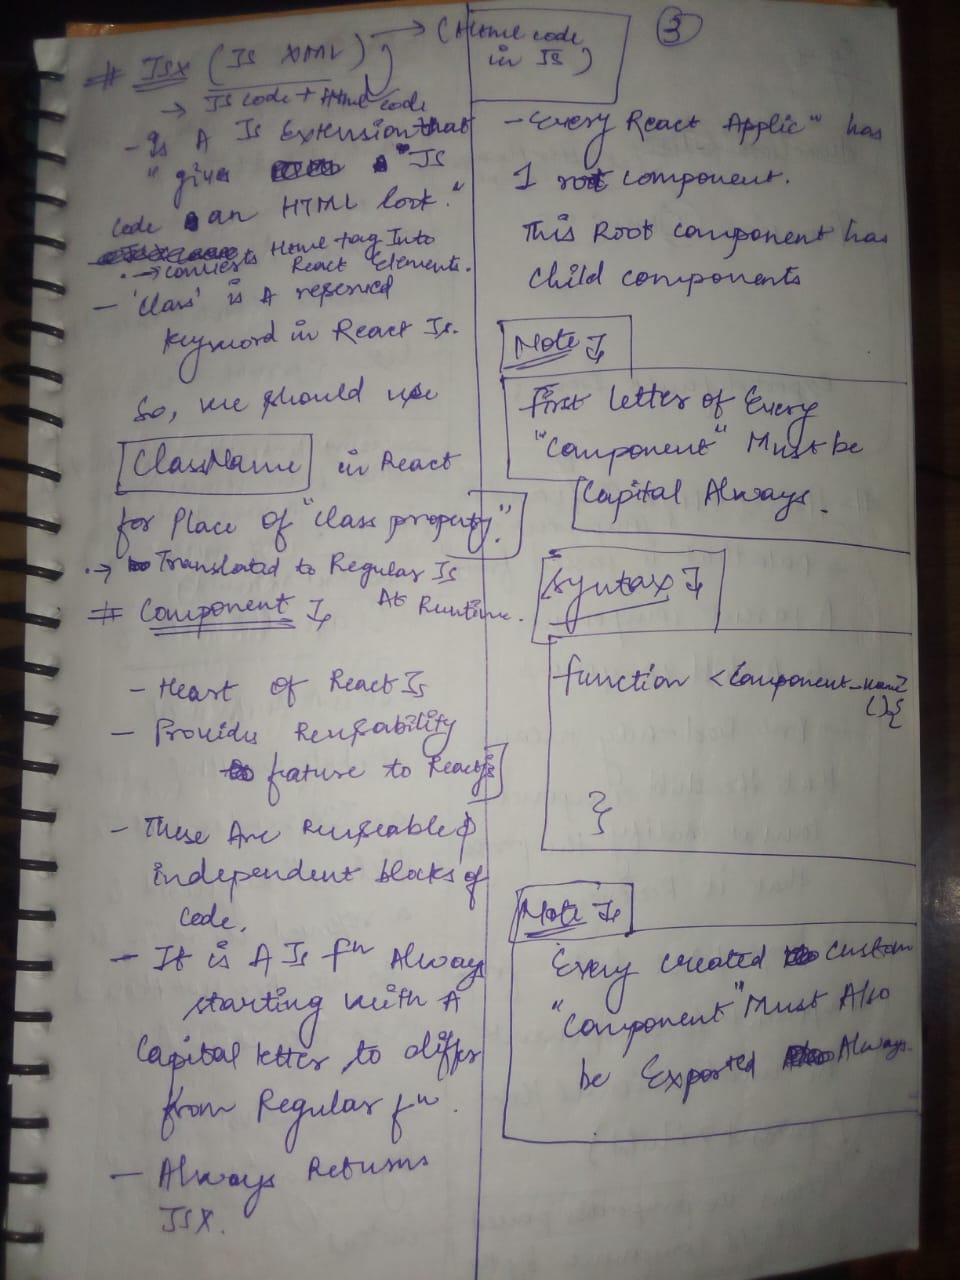 # JSX (JS XML) → (Html code
in JS)
→ JS code + Html code
- Is A Js Extension that
"gives a "JS
code an HTML look."
.→ converts Html tag Into
React Elements.
- 'Class' is A reserved
keyword in React Js.
So, we should use
ClassName in React
for Place of "class property".
.→ Translated to Regular Js
At Runtime.
# Component :-
- Heart of React Js
- Provides Reusability
fature to Reactjs
- These Are reuseable &
independent blocks of
code.
- It is A Js fⁿ Always
starting with A
Capital letter to differ
from Regular fⁿ.
- Always Returns
JSX.
3
- Every React Applicⁿ has
1 root component.
This Root component has
child components
Note :-
First letter of Every
"Component" Must be
Capital Always.
Syntax :-
function <Component_name>
(){
}
Note :-
Every created custom
"Component" Must Also
be Exported Always.